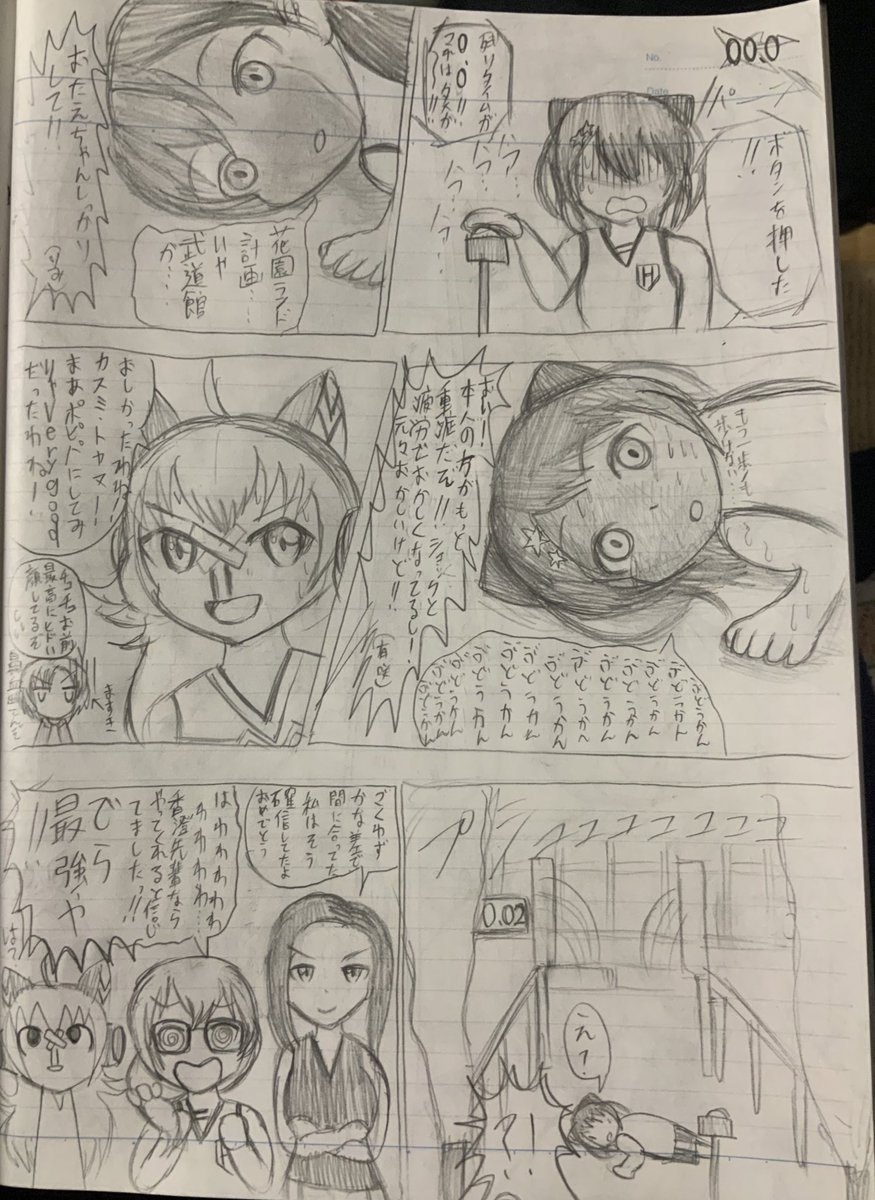 00.0
No.
Date
パーン
ボタンを押した
!!
残りタイムが
0.0!!
ハァ…
ハァ…
ハァ…
ハァ…
H
花園ランド
計画…
いや
武道館
か…
おたえちゃんしっかり
して!!
もう一歩も
歩けない…
ぶどうかん
ぶどうかん
ぶどうかん
ぶどうかん
ぶどうかん
ぶどうかん
ぶどうかん
ぶどうかん
ぶどうかん
ぶどうかん
おい!
本人の方がもっと
重症だぞ!!ショックと
疲労でおかしくなってるし!
元々おかしいけど!!
(有咲)
おしかったわね!!
カスミ・トヤマー!
まあポピパにしてみ
りゃvery good
だったわねー!
チュチュお前
最高にヒドい
顔してるぞ
ますき
プシュ
コココココ
0.02
え?
!?
ごくわず
かな差で
間に合ってた
私はそう
確信してたよ
おめでとう
はわわわわわ
わわわわ…
香澄先輩なら
やってくれると信じ
てました!!!
でら
最強や
!!!
はっ